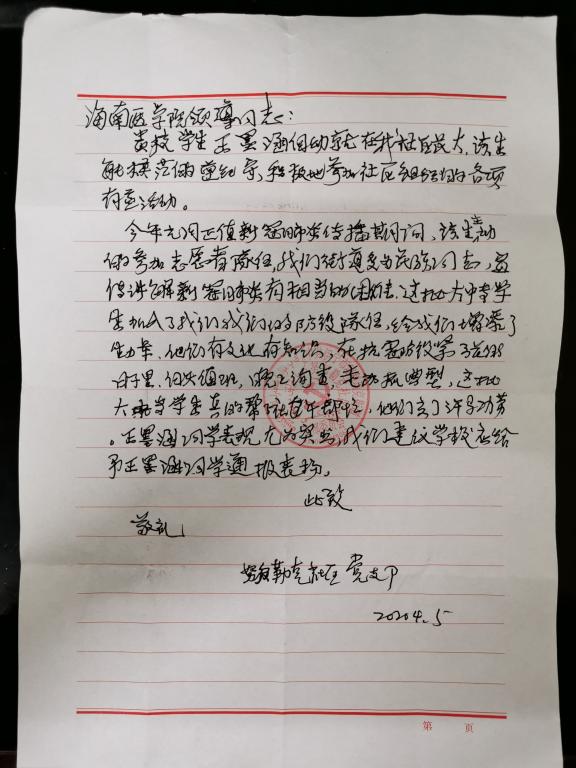 海南医学院领导同志:
贵校学生王墨涵自幼就在我社区长大,该生
能模范的遵纪守,积极地参加社区组织的各项
有益活动。
今年九月正值新冠肺炎传播期间,该生主动
的参加志愿者队伍,我们街道多为民族同志,宣
传讲解新冠肺炎有相当的困难,这批大中专学
生加入了我们我们的防疫队伍,给我们增添了
生力军,他们有文化有知识,在抗击防疫第
日子里,白天值班,晚上,这批
大中专学生真的帮社区干部忙,他们立了许多功劳
。王墨涵同学表现尤为突出,我们建议学校应给
予王墨涵同学通报表扬。
此致
敬礼
勒克社区党支部
2020 4.5
第 页